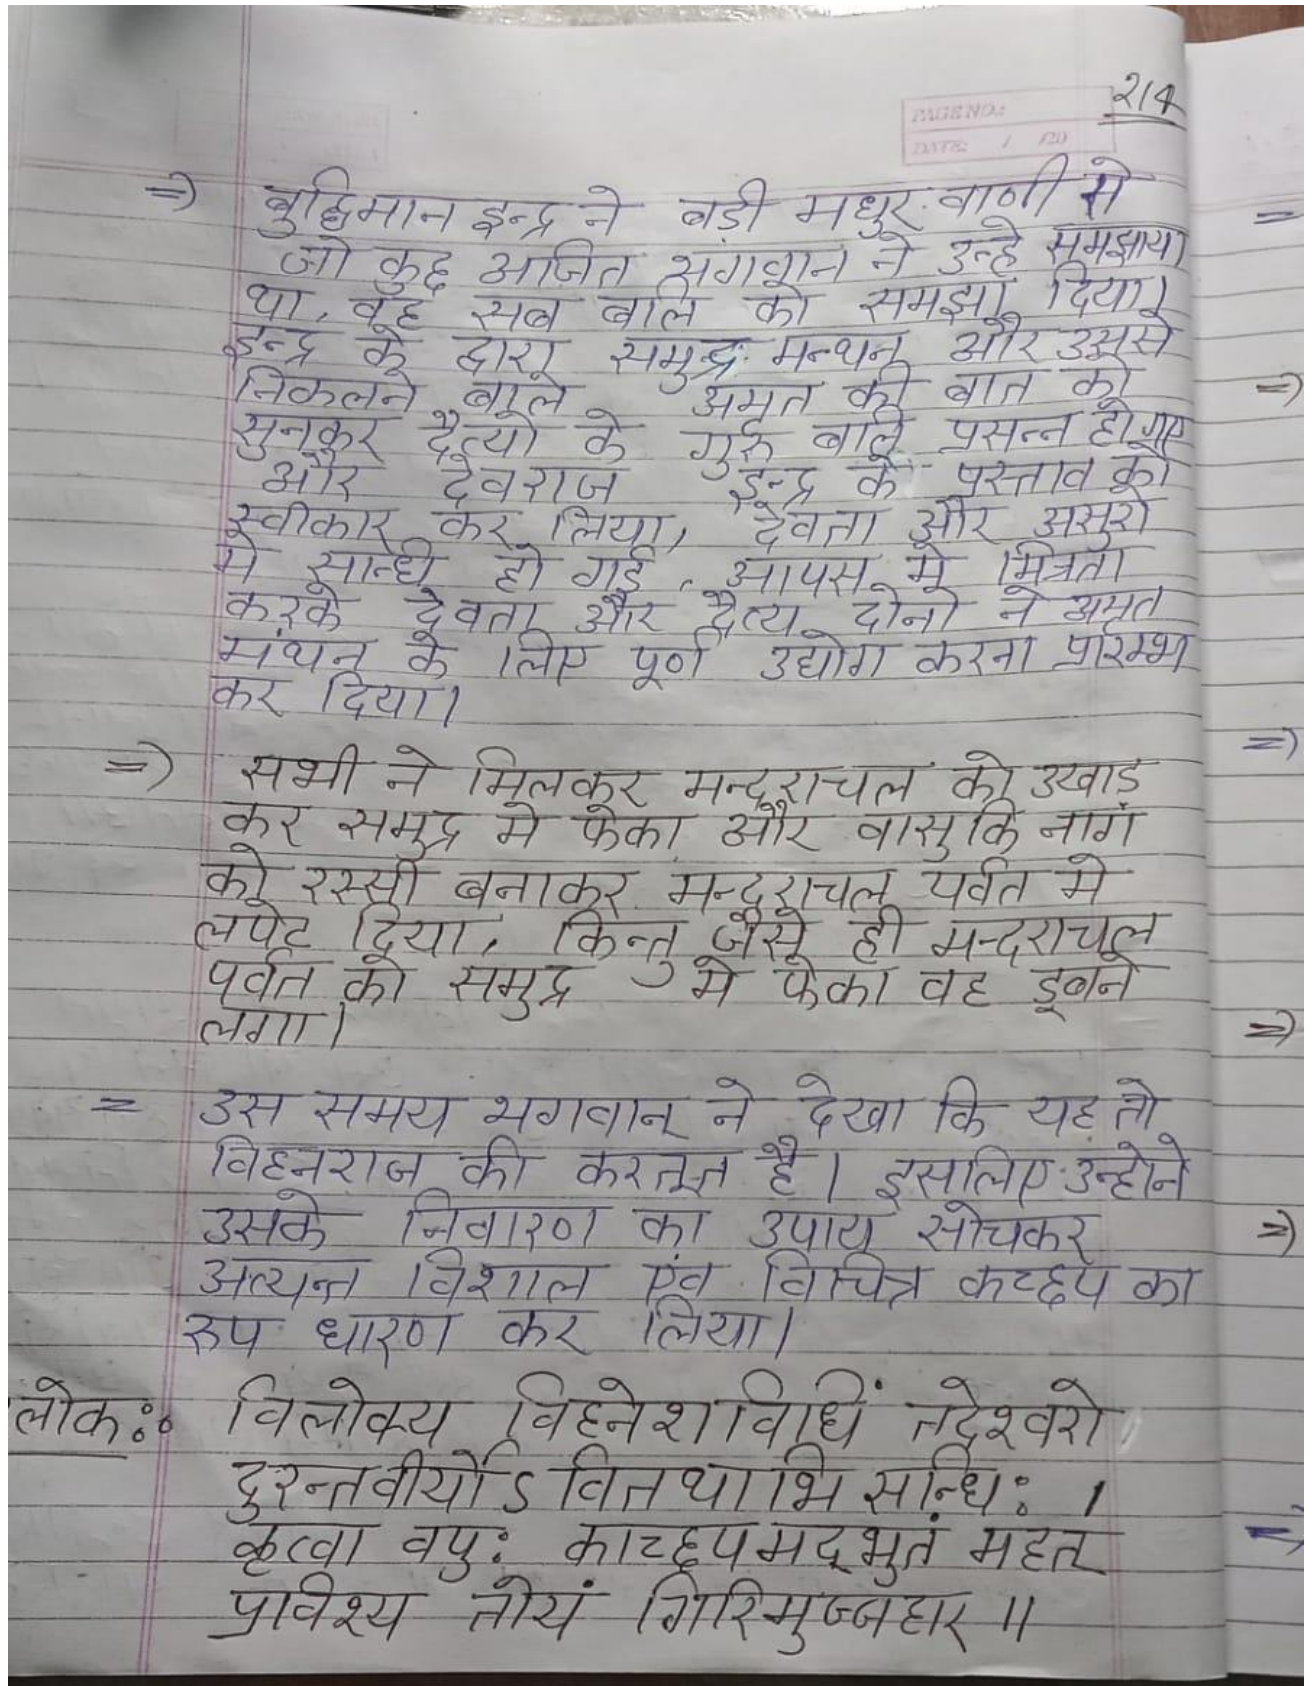 २१४
PAGE NO.:
DATE: / /20
=) बुद्धिमान इन्द्र ने बडी मधुर वाणी से
जो कुछ अजित भगवान ने उन्हे समझाया
था, वह सब बलि को समझा दिया।
इन्द्र के द्वारा समुद्र मन्थन और उससे
निकलने बाले अमृत की बात को
सुनकर दैत्यो के गुरु बलि प्रसन्न हो गए
और देवराज इन्द्र के प्रस्ताव को
स्वीकार कर लिया, देवता और असुरो
मे सन्धि हो गई, आपस मे मित्रता
करके देवता और दैत्य दोनो ने अमृत
मंथन के लिए पूर्ण उद्योग करना प्रारम्भ
कर दिया।
=) सभी ने मिलकर मन्दराचल को उखाड
कर समुद्र मे फेका और वासुकि नाग
को रस्सी बनाकर मन्दराचल पर्वत मे
लपेट दिया, किन्तु जैसे ही मन्दराचल
पर्वत को समुद्र मे फेका वह डूबने
लगा।
= उस समय भगवान् ने देखा कि यह तो
विहनराज की करतूत है। इसलिए उन्होने
उसके निवारण का उपाय सोचकर
अत्यन्त विशाल एंव विचित्र कच्छप का
रूप धारण कर लिया।
लोक:॰ विलोक्य विहनेशविधिं तदेश्वरो
दुरन्तवीर्योऽवितथाभिसन्धि: ।
कृत्वा वपु: काच्छपमद्भुतं महत्
प्रविश्य तोयं गिरिमुज्जहार ॥